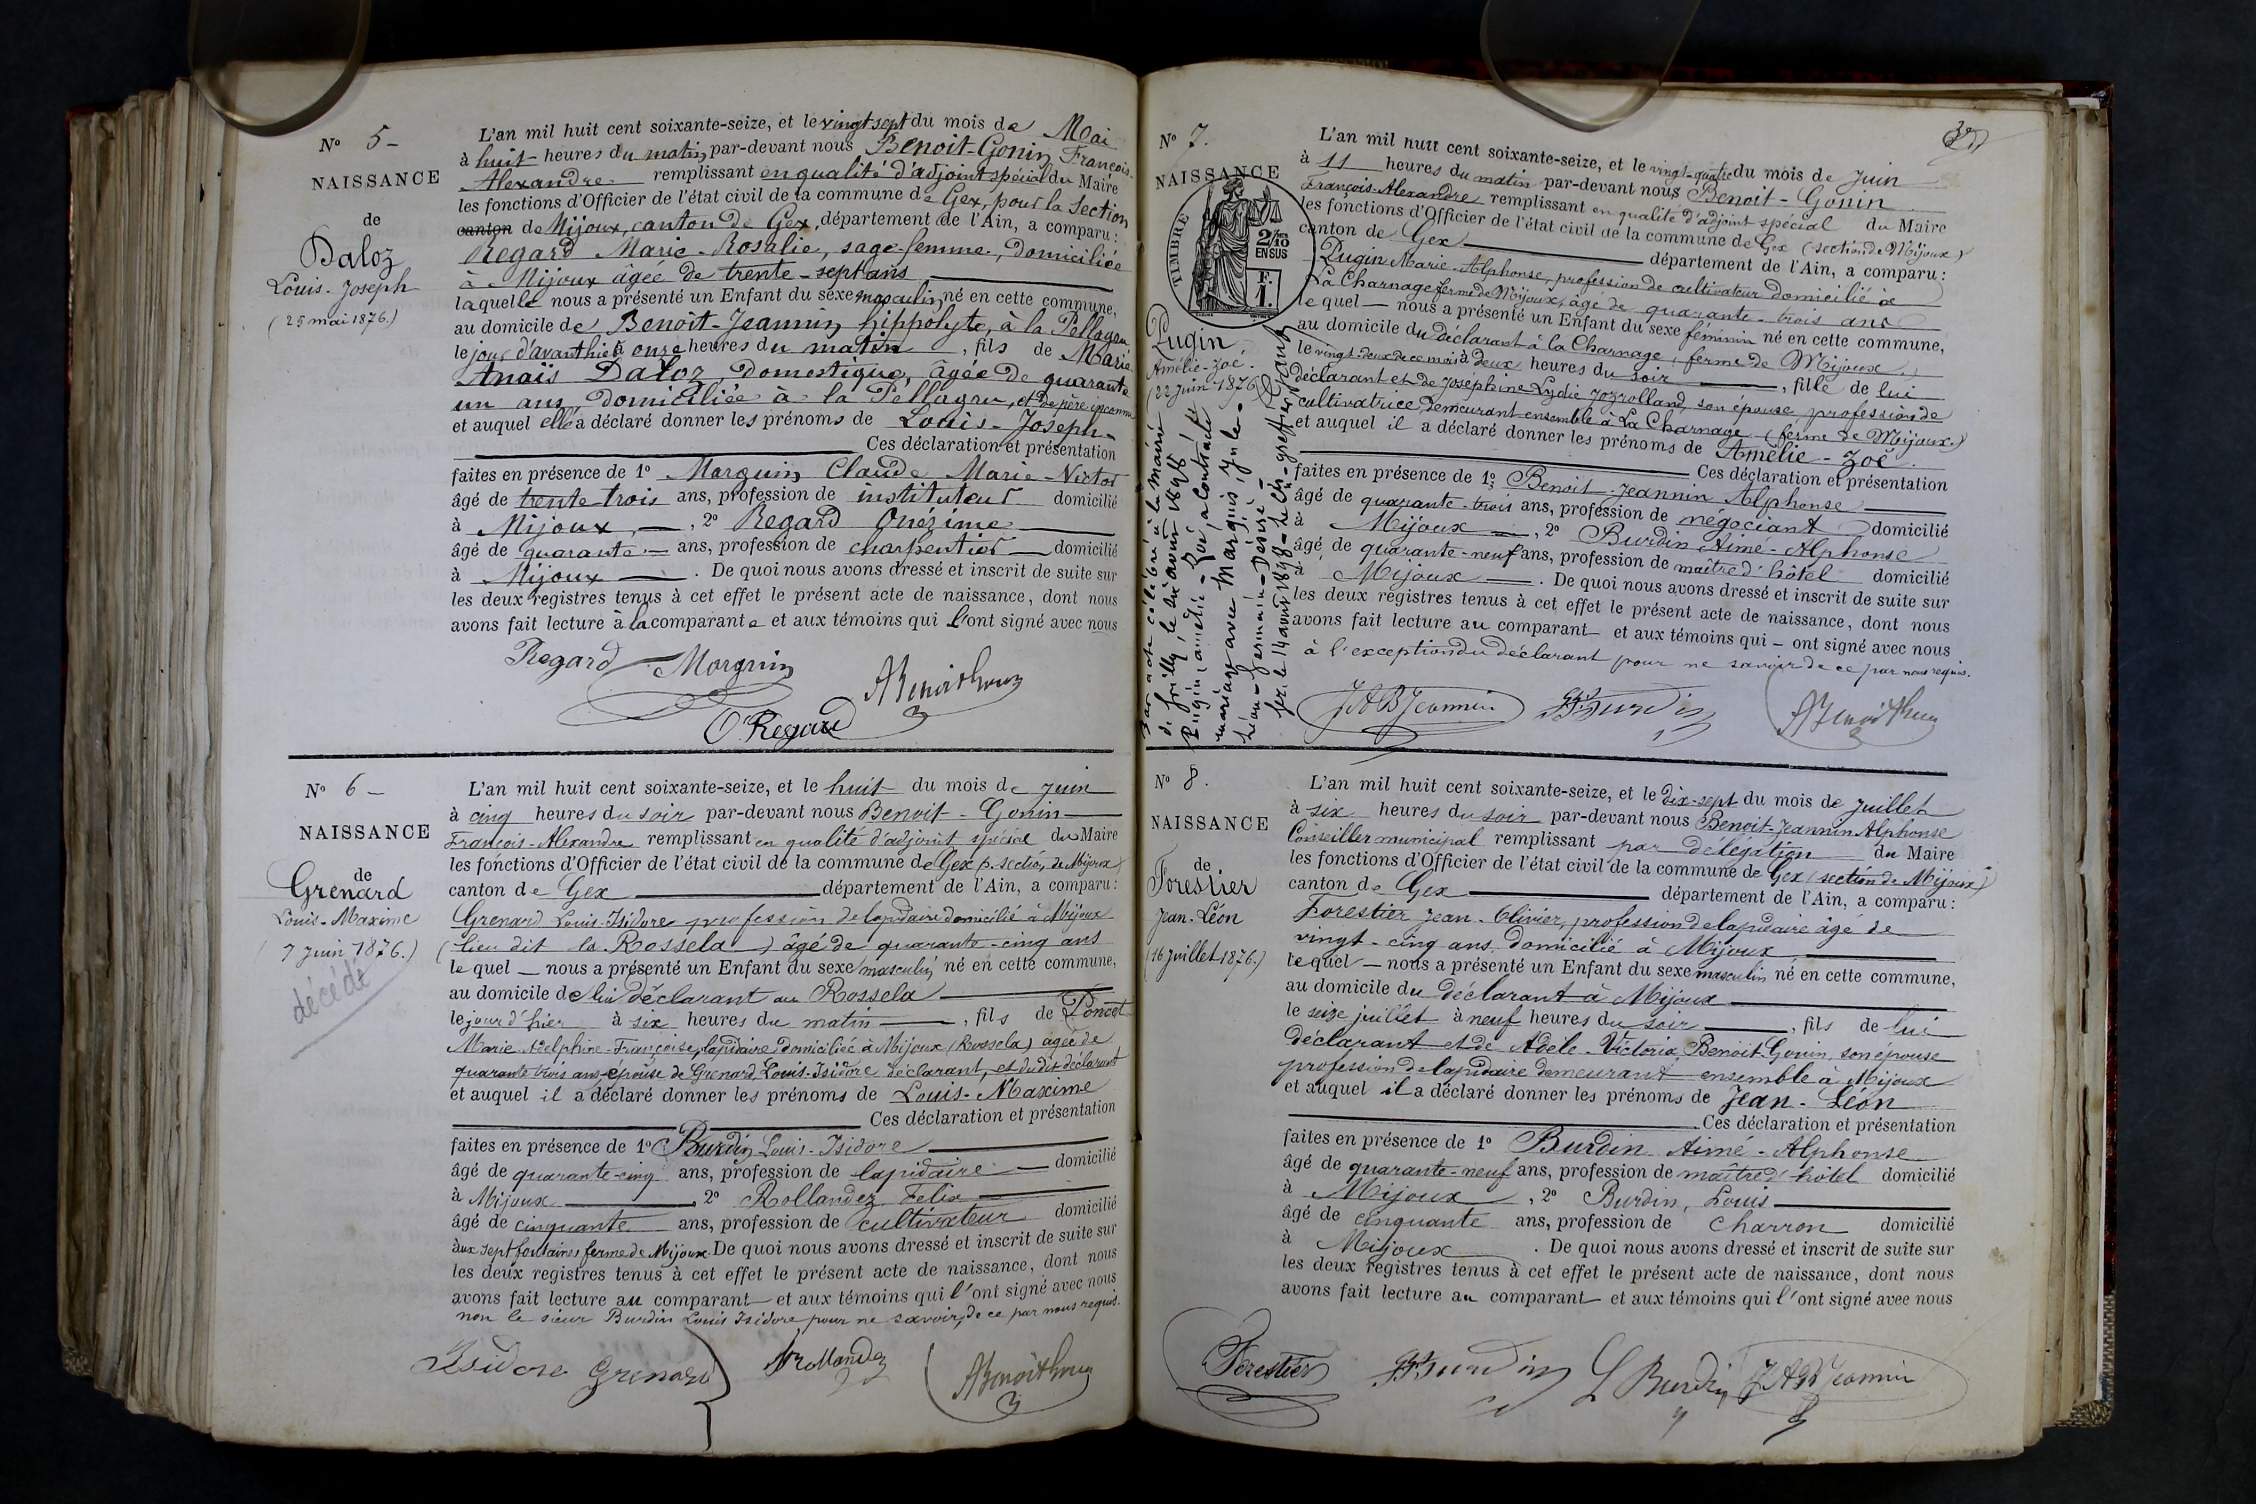 N° 5 -
NAISSANCE
de
Daloz
Louis-Joseph
(25 mai 1876.)
L'an mil huit cent soixante-seize, et le vingt sept du mois de Mai
à huit heures du matin par-devant nous Benoit-Gonin François-
Alexandre remplissant en qualité d'adjoint spécial du Maire
les fonctions d'Officier de l'état civil de la commune de Gex, pour la Section
canton de Mijoux, canton de Gex, département de l'Ain, a comparu :
Regard Marie-Rosalie, sage-femme, domiciliée
à Mijoux âgée de trente-sept ans
laquelle nous a présenté un Enfant du sexe masculin né en cette commune,
au domicile de Benoit-Jeannin hippolyte, à la Pellagru
le jour d'avant hier à onze heures du matin, fils de Marie
Anaïs Daloz, domestique, âgée de quarante
un ans, domiciliée à la Pellagru, et de père inconnu
et auquel elle a déclaré donner les prénoms de Louis-Joseph-
Ces déclaration et présentation
faites en présence de 1° Marguin Claude Marie-Victor
âgé de trente trois ans, profession de instituteur domicilié
à Mijoux, 2° Regard Onézime
âgé de quarante ans, profession de charpentier domicilié
à Mijoux. De quoi nous avons dressé et inscrit de suite sur
les deux registres tenus à cet effet le présent acte de naissance, dont nous
avons fait lecture à la comparante et aux témoins qui l'ont signé avec nous
Regard Marguin
O Regard
N° 6 -
NAISSANCE
de
Grenard
Louis-Maxime
(7 Juin 1876.)
décédé
L'an mil huit cent soixante-seize, et le huit du mois de Juin
à cinq heures du soir par-devant nous Benoit-Gonin
François-Alexandre remplissant en qualité d'adjoint spécial du Maire
les fonctions d'Officier de l'état civil de la commune de Gex p. section de Mijoux)
canton de Gex département de l'Ain, a comparu :
Grenard Louis-Isidore profession de lapidaire domicilié à Mijoux
(lieu dit la Rossela) âgé de quarante-cinq ans
le quel nous a présenté un Enfant du sexe masculin né en cette commune,
au domicile de lui déclarant au Rossela
le jour d'hier à six heures du matin, fils de Poncet
Marie Adelphine-Françoise, lapidaire domiciliée à Mijoux (Rossela) âgée de
quarante trois ans, épouse de Grenard Louis-Isidore déclarant, et du dit déclarant
et auquel il a déclaré donner les prénoms de Louis-Maxime
Ces déclaration et présentation
faites en présence de 1° Burdin Louis-Isidore
âgé de quarante-cinq ans, profession de lapidaire domicilié
à Mijoux 2° Rollandez Felix
âgé de cinquante ans, profession de cultivateur domicilié
aux sept fontaines ferme de Mijoux De quoi nous avons dressé et inscrit de suite sur
les deux registres tenus à cet effet le présent acte de naissance, dont nous
avons fait lecture au comparant et aux témoins qui l'ont signé avec nous
non le sieur Burdin Louis Isidore pour ne savoir, de ce par nous requis.
Isidore Grenard Rollandez
N° 7.
NAISSANCE
TIMBRE
2/10 EN SUS
F. 1.
Pugin
Amélie-Zoé.
(22 Juin 1876)
Par acte célébré à la mairie
Pugin, amélie-Zoé, a contracté
mariage avec Marquis, Jules-
L'an mil huit cent soixante-seize, et le vingt-quatre du mois de Juin
à 11 heures du matin par-devant nous Benoit-Gonin
François-Alexandre remplissant en qualité d'adjoint spécial du Maire
les fonctions d'Officier de l'état civil de la commune de Gex (section de Mijoux)
canton de Gex département de l'Ain, a comparu :
Pugin Marie-Alphonse, profession de cultivateur domicilié à
La Charnage ferme de Mijoux, âgé de quarante-trois ans
le quel nous a présenté un Enfant du sexe féminin né en cette commune,
au domicile du déclarant à la Charnage, ferme de Mijoux
le vingt-deux de ce mois à deux heures du soir, fille de lui
déclarant et de Joséphine Lydie son épouse profession de
cultivatrice, demeurant ensemble à La Charnage (ferme de Mijoux.)
et auquel il a déclaré donner les prénoms de Amélie-Zoé.
Ces déclaration et présentation
faites en présence de 1° Benoit-Jeannin Alphonse
âgé de quarante-trois ans, profession de négociant domicilié
à Mijoux, 2° Burdin Aimé-Alphonse
âgé de quarante-neuf ans, profession de maître d'hôtel domicilié
à Mijoux. De quoi nous avons dressé et inscrit de suite sur
les deux registres tenus à cet effet le présent acte de naissance, dont nous
avons fait lecture au comparant et aux témoins qui - ont signé avec nous
à l'exception du déclarant pour ne savoir de ce par nous requis.
J A B Jeannin Burdin
N° 8.
NAISSANCE
de
Forestier
Jean-Léon
(16 juillet 1876.)
L'an mil huit cent soixante-seize, et le dix-sept du mois de Juillet
à six heures du soir par-devant nous Benoit-Jeannin Alphonse
Conseiller municipal remplissant par délégation du Maire
les fonctions d'Officier de l'état civil de la commune de Gex (section de Mijoux)
canton de Gex département de l'Ain, a comparu :
Forestier Jean-Olivier, profession de lapidaire âgé de
vingt-cinq ans domicilié à Mijoux
le quel nous a présenté un Enfant du sexe masculin né en cette commune,
au domicile du déclarant à Mijoux
le seize juillet à neuf heures du soir, fils de lui
déclarant et de Adèle-Victoria Benoit Gonin, son épouse
profession de lapidaire demeurant ensemble à Mijoux
et auquel il a déclaré donner les prénoms de Jean-Léon
Ces déclaration et présentation
faites en présence de 1° Burdin Aimé-Alphonse
âgé de quarante-neuf ans, profession de maître d'hôtel domicilié
à Mijoux, 2° Burdin, Louis
âgé de cinquante ans, profession de charron domicilié
à Mijoux. De quoi nous avons dressé et inscrit de suite sur
les deux registres tenus à cet effet le présent acte de naissance, dont nous
avons fait lecture au comparant et aux témoins qui l'ont signé avec nous
Forestier Burdin L Burdin J A B Jeannin